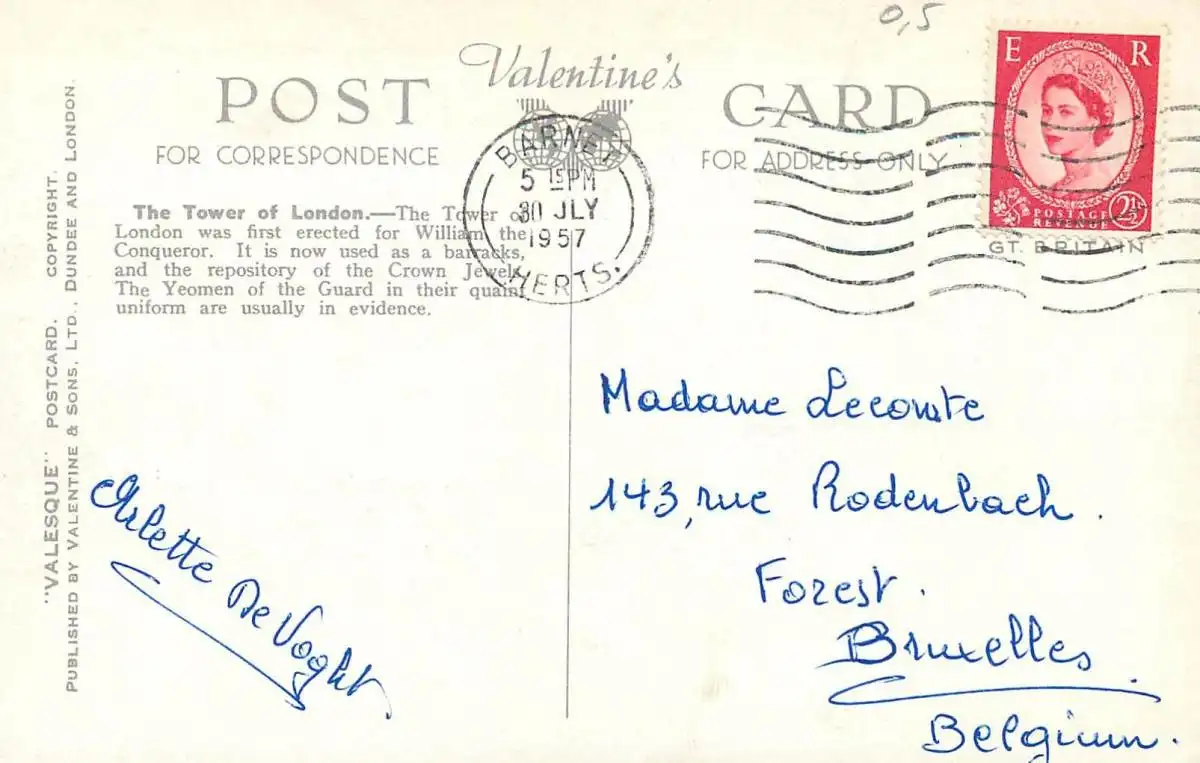 0,5
Valentine's
POST CARD
FOR CORRESPONDENCE
FOR ADDRESS ONLY
E R
POSTAGE
REVENUE
2½
GT. BRITAIN
BARNET
5 15 PM
30 JLY
1957
HERTS.
The Tower of London.—The Tower of
London was first erected for William the
Conqueror. It is now used as a barracks,
and the repository of the Crown Jewels.
The Yeomen of the Guard in their quaint
uniform are usually in evidence.
"VALESQUE" POSTCARD. COPYRIGHT.
PUBLISHED BY VALENTINE & SONS, LTD., DUNDEE AND LONDON.
Arlette De Voght.
Madame Lecomte
143, rue Rodenbach.
Forest.
Bruxelles.
Belgium.